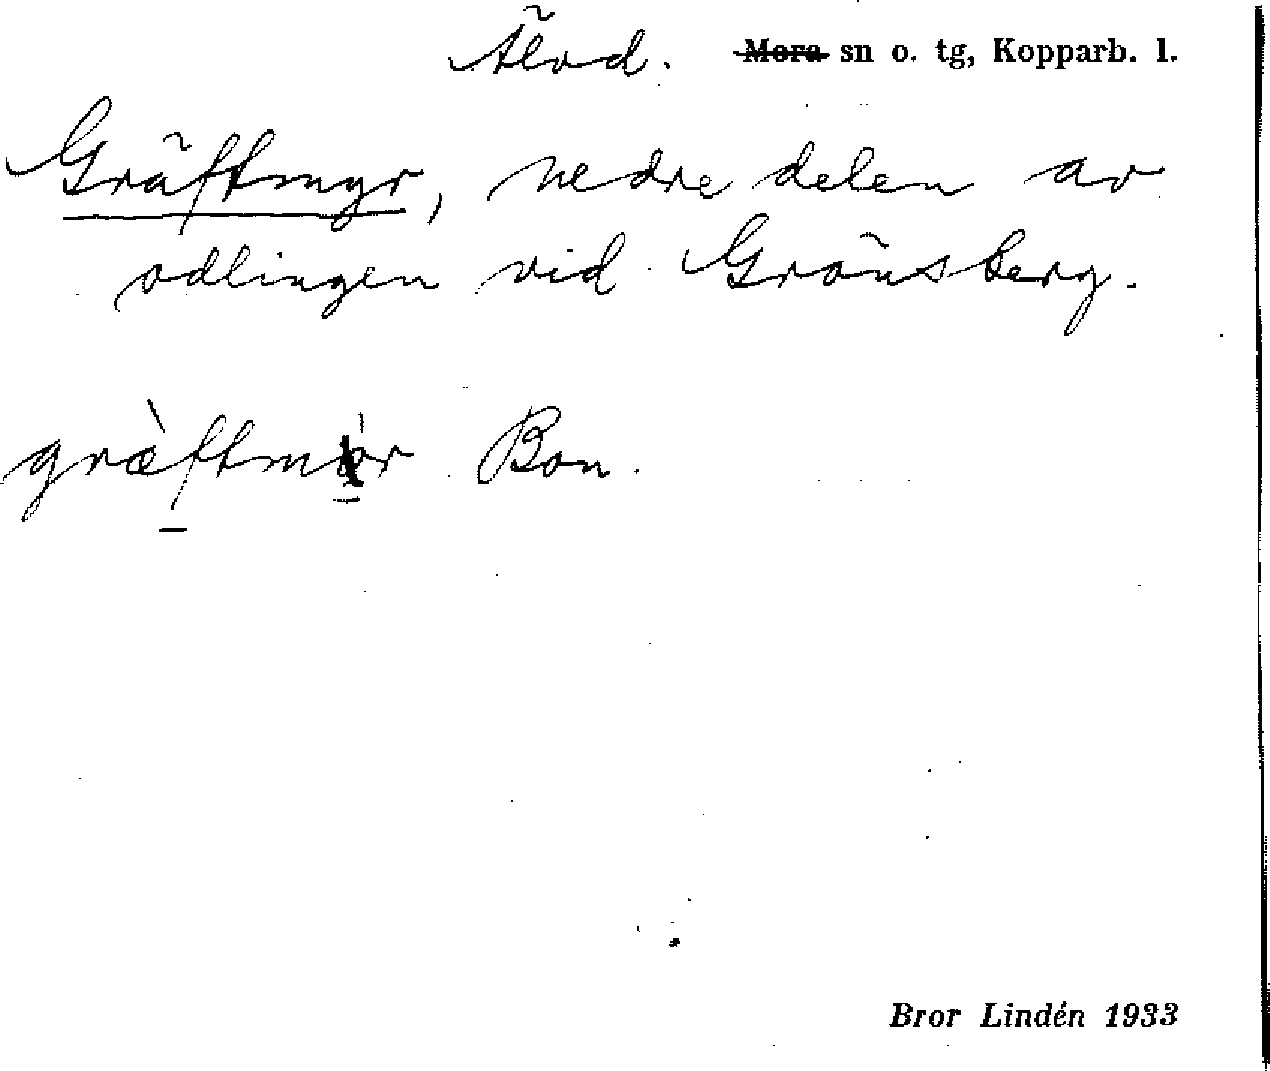 Älvd. Mora sn o. tg, Kopparb. l.
Gräftmyr, nedre delen av
odlingen vid Grönsberg.
Bon.
Bror Lindén 1933